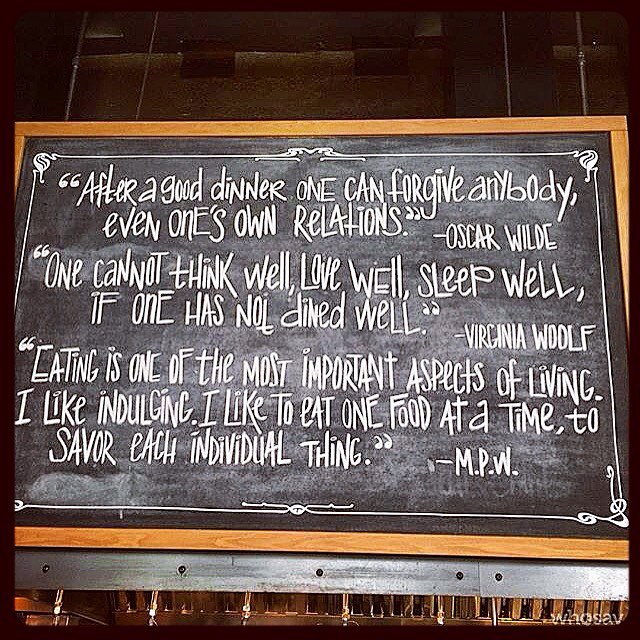 “After a good dinner one can forgive anybody,
even one's own relations.”
-Oscar Wilde
“One cannot think well, love well, sleep well,
if one has not dined well.”
-Virginia Woolf
“Eating is one of the most important aspects of living.
I like indulging. I like to eat one food at a time, to
savor each individual thing.”
-M.P.W.